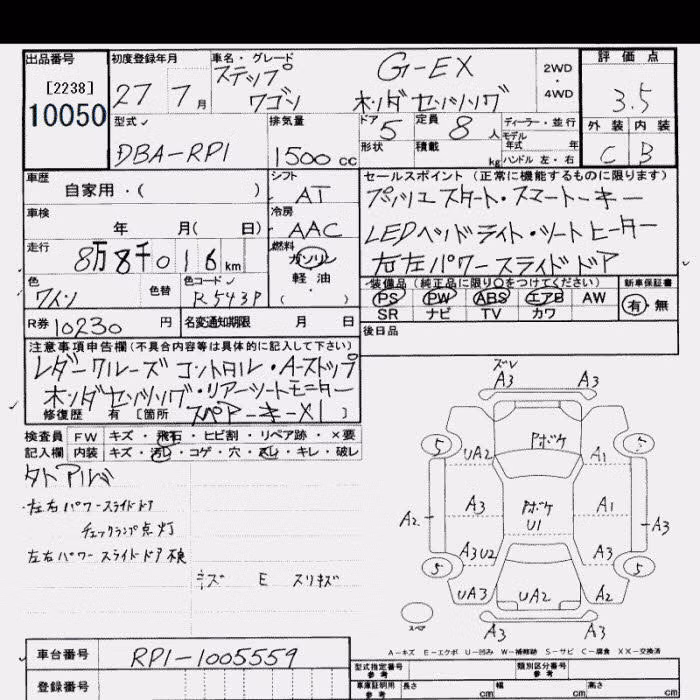 出品番号 初度登録年月 車名・グレード 評価点
[2238] ステップ G-EX 2WD
10050 27 7月 ワゴン ホンダセンシング 4WD 3.5
型式 排気量 ドア 定員 ディーラー・並行 外装 内装
DBA-RP1 1500cc 5 8人 モデル年式 年
形状 積載 kg ハンドル 左・右 C B
車歴 シフト セールスポイント (正常に機能するものに限ります)
自家用・( ) AT プッシュスタート・スマートキー
車検 冷房
年 月( 日) AAC LEDヘッドライト・シートヒーター
走行 燃料
8万8千016km ガソリン 右左パワースライドドア
軽油
色 色替 色コード ( ) 装備品 (純正品に限り○をつけてください) 新車保証書
ワイン R543P PS PW ABS エアB AW 有・無
SR ナビ TV カワ
R券 10230円 名変通知期限 月 日 後日品
注意事項申告欄(不具合内容等は具体的に記入して下さい)
レダークルーズコントロル・A-ストップ
ホンダセンシング・リアーシートモニター
修復歴 有 [箇所 スペアーキー×1 ]
検査員 FW キズ・飛石・ヒビ割・リペア跡・×要
記入欄 内装 キズ・汚レ・コゲ・穴・スレ・キレ・破レ
タトアルバ
・左右パワースライドドア
チェックランプ点灯
左右パワースライドドア不良
キズ E スリキズ
ズレ
A3 A3
5 Pボケ 5
UA2 A1
A3 Pボケ A1
A2 U1 A3
A3U2 A3
5 5
UA3 UA2 A2
スペア A3 A3
A-キズ E-エクボ U-凹み W-補修跡 S-サビ C-腐食 XX-交換済
車台番号 RP1-1005559
型式指定番号 参考 類別区分番号 参考
登録番号 車庫証明用 参考 長さ cm 幅 cm 高さ cm